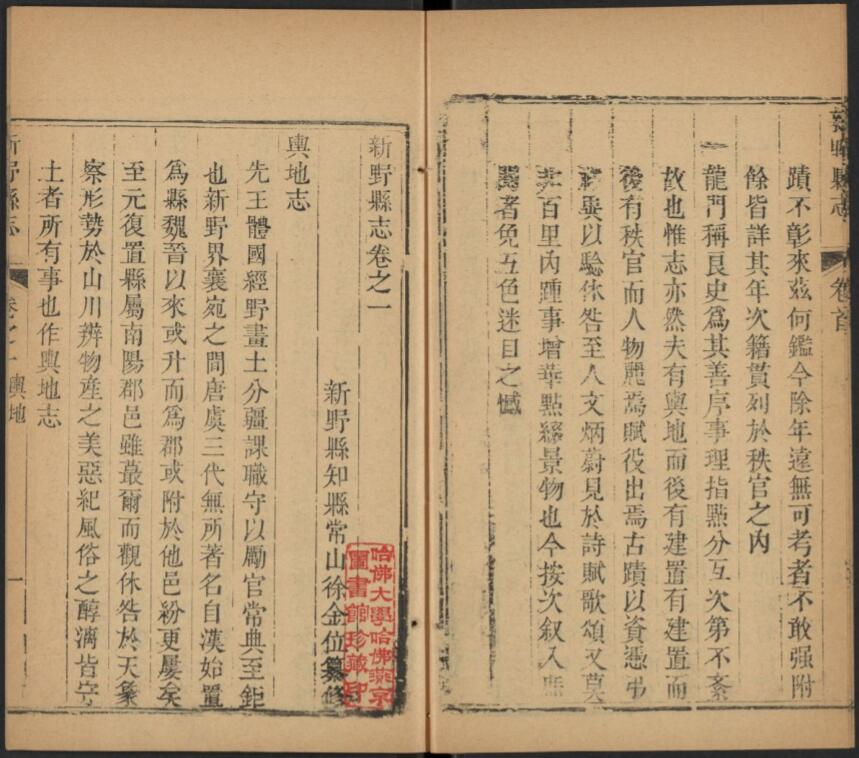 新野縣志
卷首
蹟不彰來茲何鑑今除年遠無可考者不敢强附
餘皆詳其年次籍貫列於秩官之內
一龍門稱良史爲其善序事理指㸃分互次第不紊
故也惟志亦然夫有輿地而後有建置有建置而
後有秩官而人物麗焉賦役出焉古蹟以資憑弔
異以驗休咎至人文炳蔚見於詩賦歌頌又莫
非百里內踵事增華點綴景物也今按次叙入
覽者免五色迷目之憾
新野縣志卷之一
新野縣知縣常山徐金位纂修
輿地志
先王體國經野畫土分疆課職守以勵官常典至鉅
也新野界襄宛之間唐虞三代無所著名自漢始置
爲縣魏晉以來或升而爲郡或附於他邑紛更屢矣
至元復置縣屬南陽郡邑雖蕞爾而觀休咎於天象
察形勢於山川辨物產之美惡紀風俗之醇漓皆守
土者所有事也作輿地志
新野縣志
卷之一 輿地
一
哈佛大學哈佛燕京
圖書館珍藏印